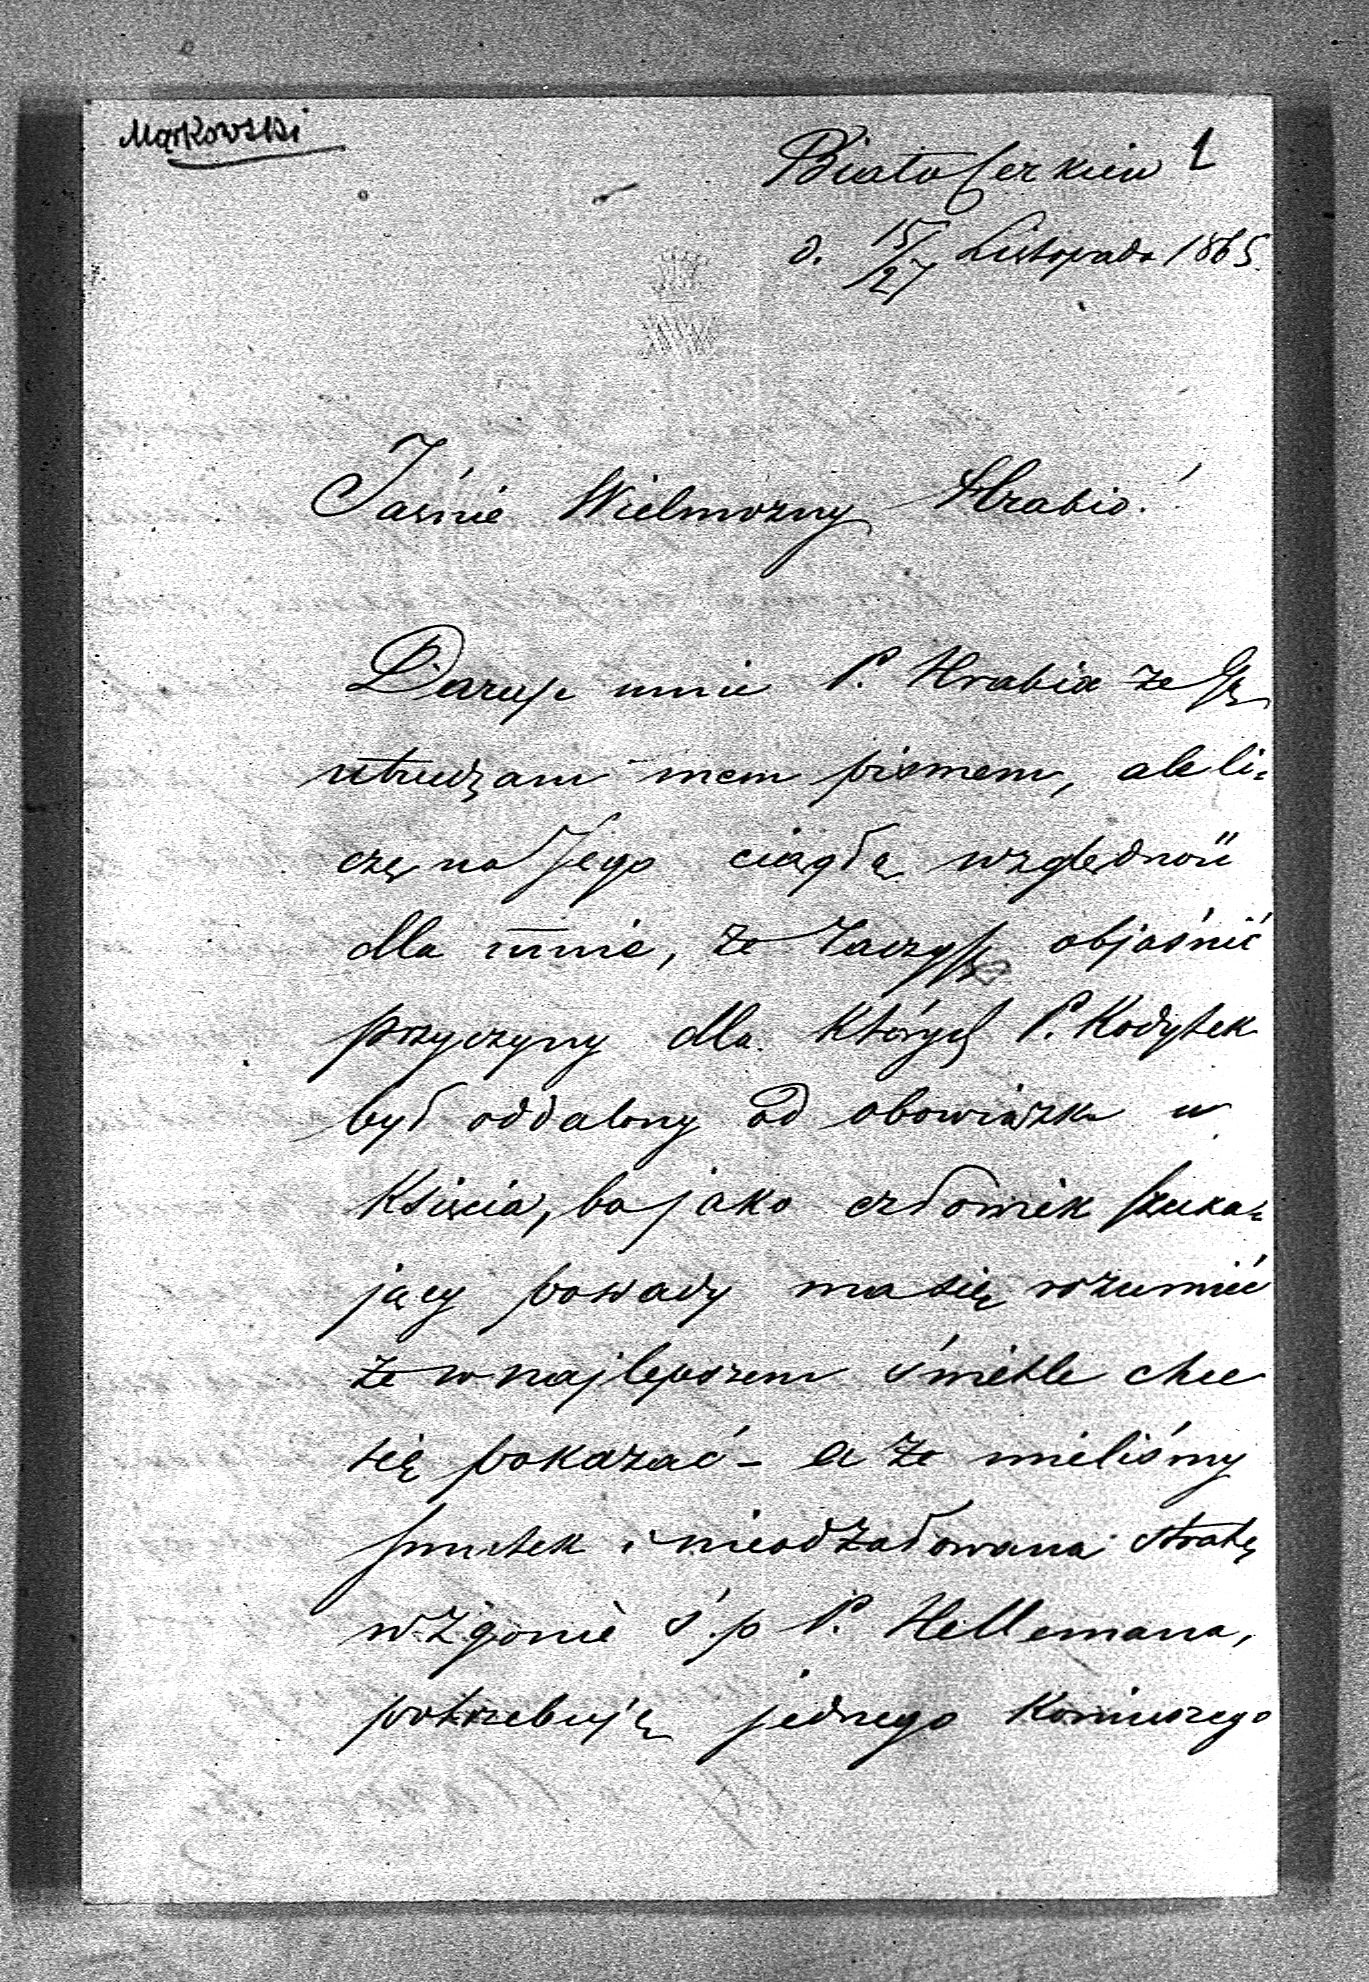 Mąkowski
1
Białocerkiew
d. 15/27 Listopada 1865.
Jaśnie Wielmożny Hrabio!
Daruje mnie P. Hrabia że Go
utrudzam mem pismem, ale li=
czę na Jego ciągłą względność
dla mnie, że raczysz objaśnić
przyczyny dla których P. Kodytek
był oddalony od obowiązku u
Księcia, bo jako człowiek szuka=
jący posady ma się rozumieć
że w najlepszem świetle chce
się pokazać - a że mieliśmy
smutek i nieodżałowana stratę
w zgonie ś.p P. Hellemana,
potrzebuję jednego Koniuszego